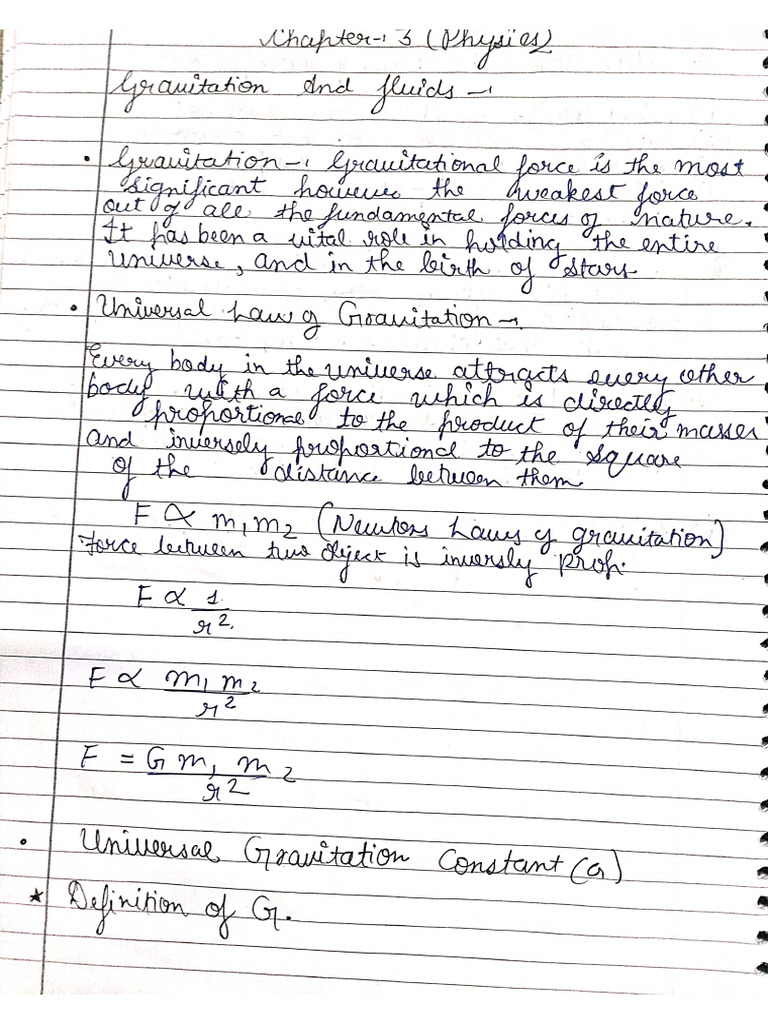 Chapter-: 3 (Physics)
Gravitation And fluids -:
• Gravitation -: Gravitational force is the most
significant however the weakest force
out of all the fundamental forces of nature.
It has been a vital role in holding the entire
universe, and in the birth of stars
• Universal Law of Gravitation -:
Every body in the universe attracts every other
body with a force which is directly
proportional to the product of their masses
and inversely proportional to the square
of the distance between them
F ∝ m₁ m₂ (Newtons Laws of gravitation)
Force between two object is inversly prop.
F ∝ 1/r².
F ∝ m₁ m₂/r²
F = G m₁ m₂/r²
• Universal Gravitation Constant (G)
* Definition of G.